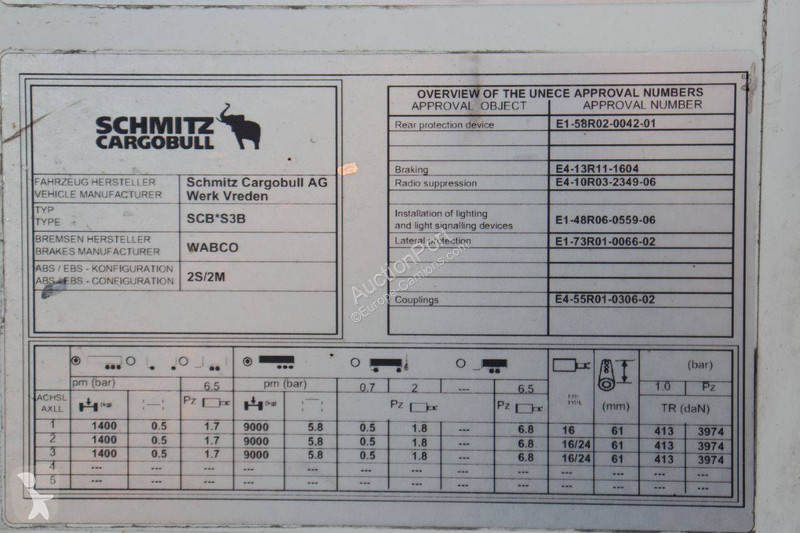 SCHMITZ
CARGOBULL
FAHRZEUG HERSTELLER
VEHICLE MANUFACTURER
Schmitz Cargobull AG
Werk Vreden
TYP
TYPE
SCB*S3B
BREMSEN HERSTELLER
BRAKES MANUFACTURER
WABCO
ABS / EBS - KONFIGURATION
ABS / EBS - CONFIGURATION
2S/2M
OVERVIEW OF THE UNECE APPROVAL NUMBERS
APPROVAL OBJECT APPROVAL NUMBER
Rear protection device E1-58R02-0042-01
Braking E4-13R11-1604
Radio suppression E4-10R03-2349-06
Installation of lighting
and light signalling devices E1-48R06-0559-06
Lateral protection E1-73R01-0066-02
Couplings E4-55R01-0306-02
AuctionPort
©Europe-Camions.com
(bar)
pm (bar) 6.5 pm (bar) 0.7 2 --- 6.5 1.0 Pz
ACHSL
AXLL
(kg) Pz (kg) Pz Pz TYPE (mm) TR (daN)
1 1400 0.5 1.7 9000 5.8 0.5 1.8 6.8 16 61 413 3974
2 1400 0.5 1.7 9000 5.8 0.5 1.8 6.8 16/24 61 413 3974
3 1400 0.5 1.7 9000 5.8 0.5 1.8 6.8 16/24 61 413 3974
4 --- --- --- --- --- --- --- --- --- --- --- ---
5 --- --- --- --- --- --- --- --- --- --- --- ---